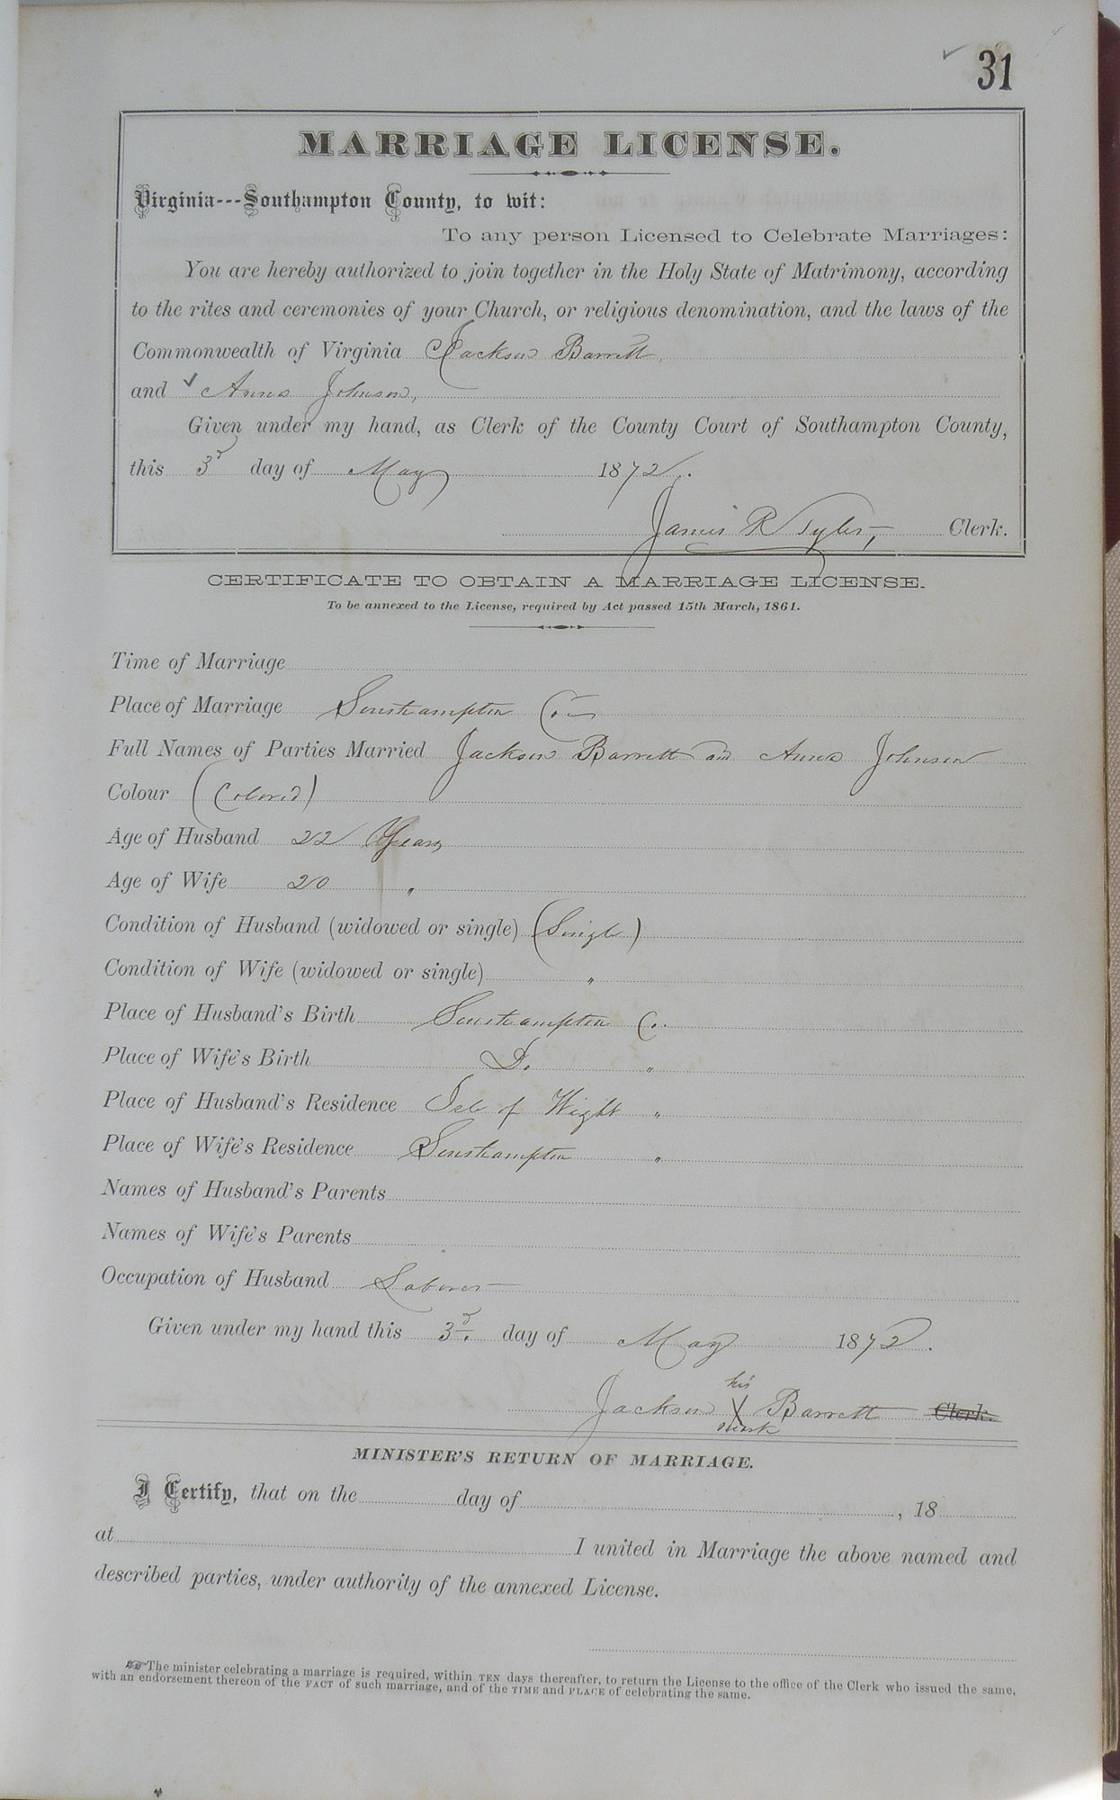 31
MARRIAGE LICENSE.
Virginia---Southampton County, to wit:
To any person Licensed to Celebrate Marriages:
You are hereby authorized to join together in the Holy State of Matrimony, according
to the rites and ceremonies of your Church, or religious denomination, and the laws of the
Commonwealth of Virginia Jackson Barrett,
and ✓ Anna Johnson,
Given under my hand, as Clerk of the County Court of Southampton County,
this 3d day of May 1872.
James R Tyler, Clerk.
CERTIFICATE TO OBTAIN A MARRIAGE LICENSE.
To be annexed to the License, required by Act passed 15th March, 1861.
Time of Marriage
Place of Marriage Southampton Co
Full Names of Parties Married Jackson Barrett and Anna Johnson
Colour (Colored)
Age of Husband 22 Years
Age of Wife 20 "
Condition of Husband (widowed or single) (Single)
Condition of Wife (widowed or single) "
Place of Husband's Birth Southampton Co.
Place of Wife's Birth Do. "
Place of Husband's Residence Isle of Wight "
Place of Wife's Residence Southampton "
Names of Husband's Parents
Names of Wife's Parents
Occupation of Husband Laborer
Given under my hand this 3d. day of May 1872.
his
Jackson X Barrett Clerk.
mark
MINISTER'S RETURN OF MARRIAGE.
I Certify, that on the day of , 18
at I united in Marriage the above named and
described parties, under authority of the annexed License.
☞The minister celebrating a marriage is required, within TEN days thereafter, to return the License to the office of the Clerk who issued the same,
with an endorsement thereon of the FACT of such marriage, and of the TIME and PLACE of celebrating the same.